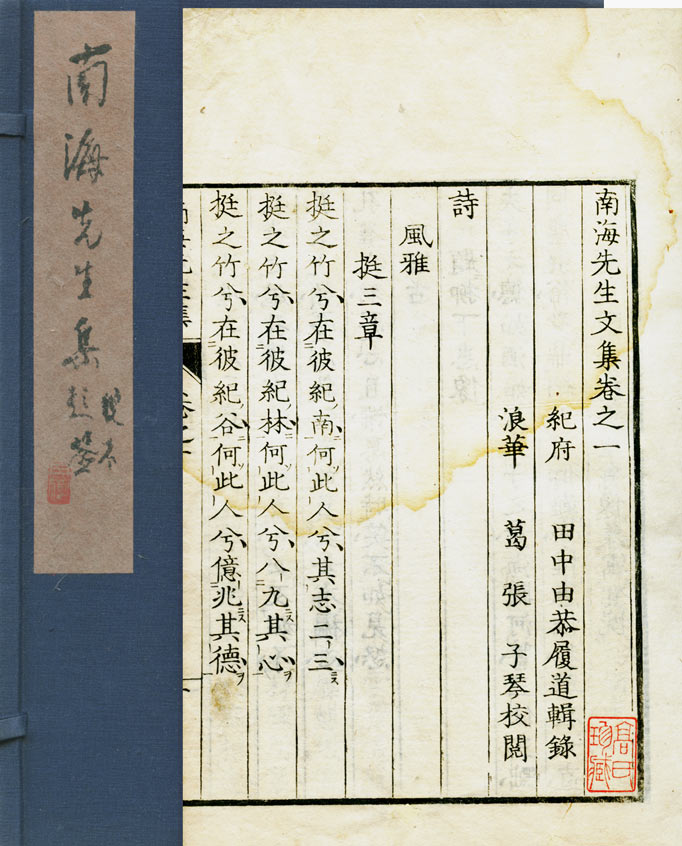 南海先生集
南海先生文集卷之一
紀府 田中由恭履道輯錄
浪華 葛 張 子琴校閱
詩
風雅
挺三章
挺之竹兮在彼紀南何此人兮其志二三
挺之竹兮在彼紀林何此人兮八九其心
挺之竹兮在彼紀谷何此人兮億兆其德
高氏珍藏